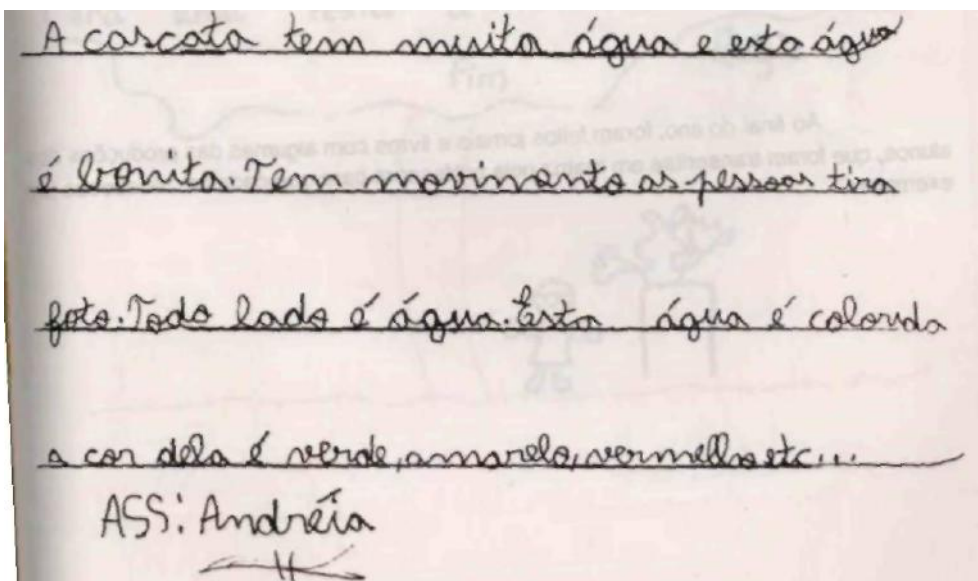 A cascata tem muita água e esta água
é bonita. Tem movimento as pessoas tira
foto. Todo lado é água. Esta água é colorida
a cor dela é verde, amarelo, vermelho etc...
ASS: Andréia